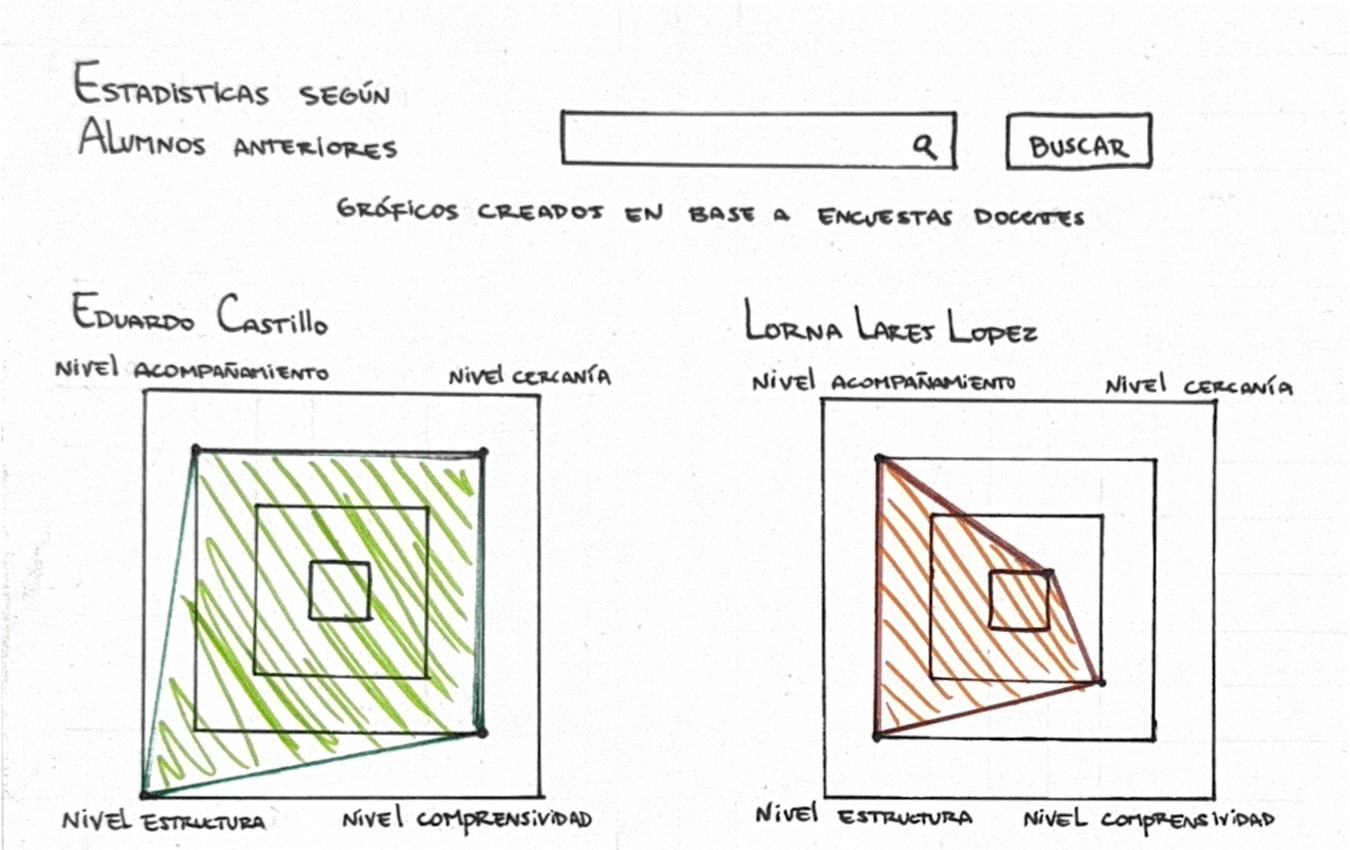 ESTADISTICAS SEGÚN
ALUMNOS ANTERIORES
BUSCAR
GRÁFICOS CREADOS EN BASE A ENCUESTAS DOCENTES
EDUARDO CASTILLO
NIVEL ACOMPAÑAMIENTO NIVEL CERCANÍA
NIVEL ESTRUCTURA NIVEL COMPRENSIVIDAD
LORNA LARES LOPEZ
NIVEL ACOMPAÑAMIENTO NIVEL CERCANÍA
NIVEL ESTRUCTURA NIVEL COMPRENSIVIDAD